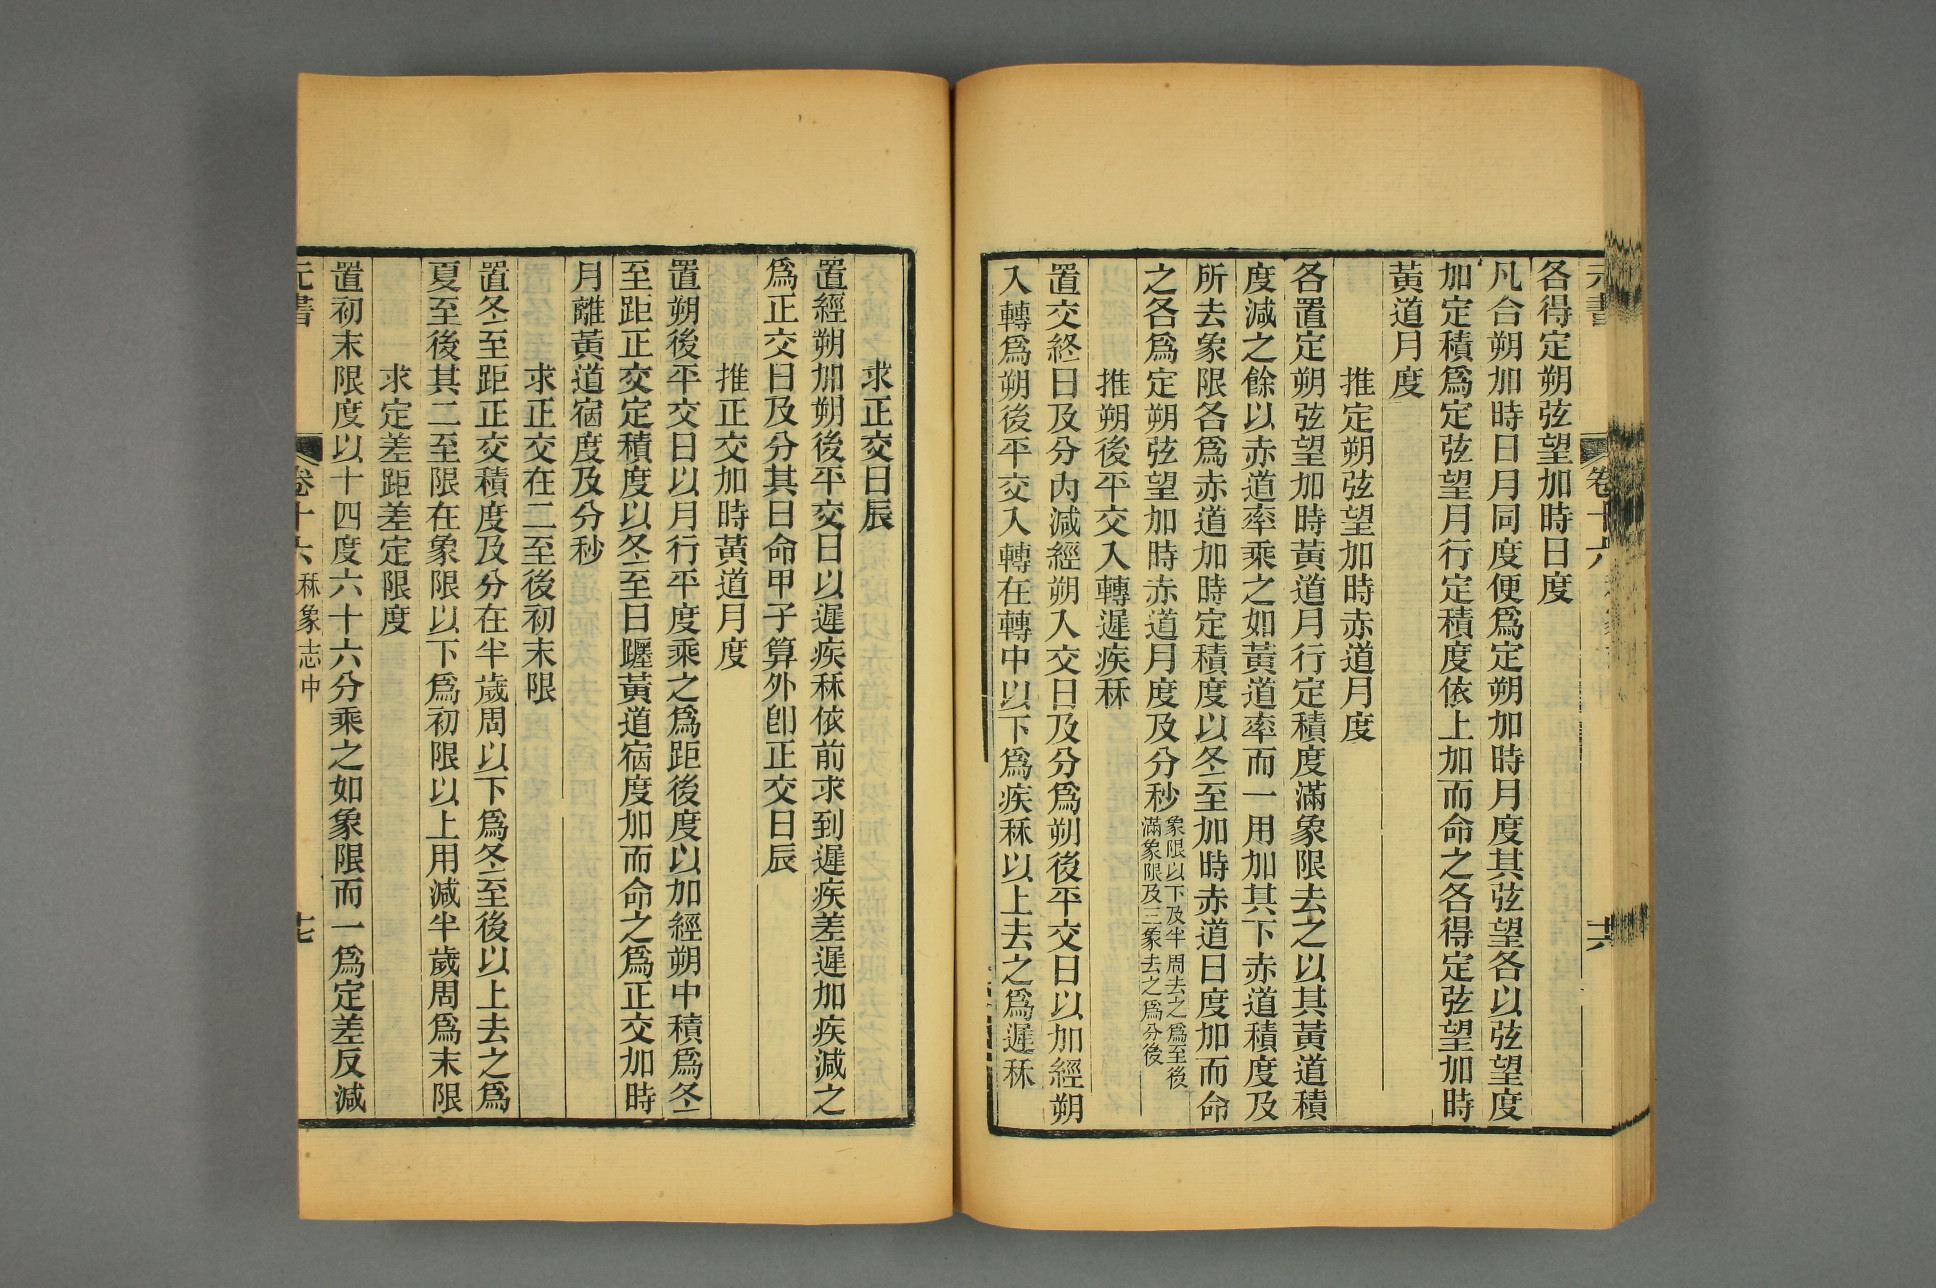 元書
卷十六
十六
各得定朔弦望加時日度
凡合朔加時日月同度便爲定朔加時月度其弦望各以弦望度
加定積爲定弦望月行定積度依上加而命之各得定弦望加時
黃道月度
推定朔弦望加時赤道月度
各置定朔弦望加時黃道月行定積度滿象限去之以其黃道積
度減之餘以赤道率乘之如黃道率而一用加其下赤道積度及
所去象限各爲赤道加時定積度以冬至加時赤道日度加而命
之各爲定朔弦望加時赤道月度及分秒象限以下及半周去之爲至後
滿象限及三象去之爲分後
推朔後平交入轉遲疾秝
置交終日及分內減經朔入交日及分爲朔後平交日以加經朔
入轉爲朔後平交入轉在轉中以下爲疾秝以上去之爲遲秝
求正交日辰
置經朔加朔後平交日以遲疾秝依前求到遲疾差遲加疾減之
爲正交日及分其日命甲子算外卽正交日辰
推正交加時黃道月度
置朔後平交日以月行平度乘之爲距後度以加經朔中積爲冬
至距正交定積度以冬至日躔黃道宿度加而命之爲正交加時
月離黃道宿度及分秒
求正交在二至後初末限
置冬至距正交積度及分在半歲周以下爲冬至後以上去之爲
夏至後其二至限在象限以下爲初限以上用減半歲周爲末限
求定差距差定限度
置初末限度以十四度六十六分乘之如象限而一爲定差反減
元書
卷十六
秝象志中
十七